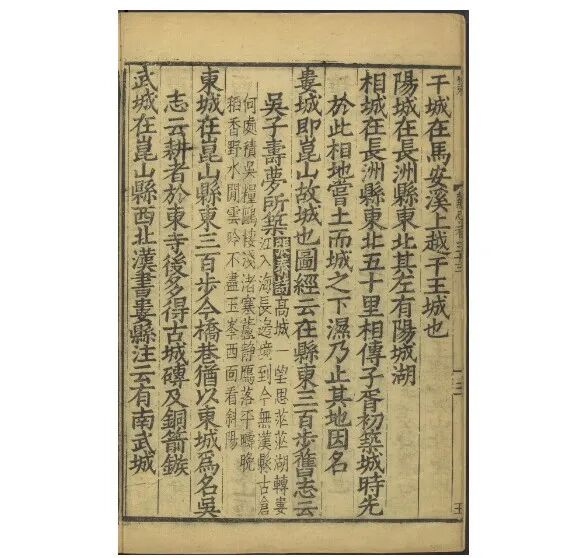 干城在馬安溪上越干王城也
陽城在長洲縣東北其左有陽城湖
相城在長洲縣東北五十里相傳子胥初築城時先
於此相地嘗土而城之下濕乃止其地因名
婁城即崑山故城也圖經云在縣東三百步舊志云
吳子壽夢所築張泰詩高城一望思茫茫湖轉婁
江入海長境到今無漢縣古倉
何處積吳糧鷗棲淺渚寒蘆靜鴈落平疇晚
稻香野水閒雲吟不盡玉峯西面看斜陽
東城在崑山縣東三百步今橋巷猶以東城爲名吳
志云耕者於東寺後多得古城磚及銅箭鏃
武城在崑山縣西北漢書婁縣注云有南武城